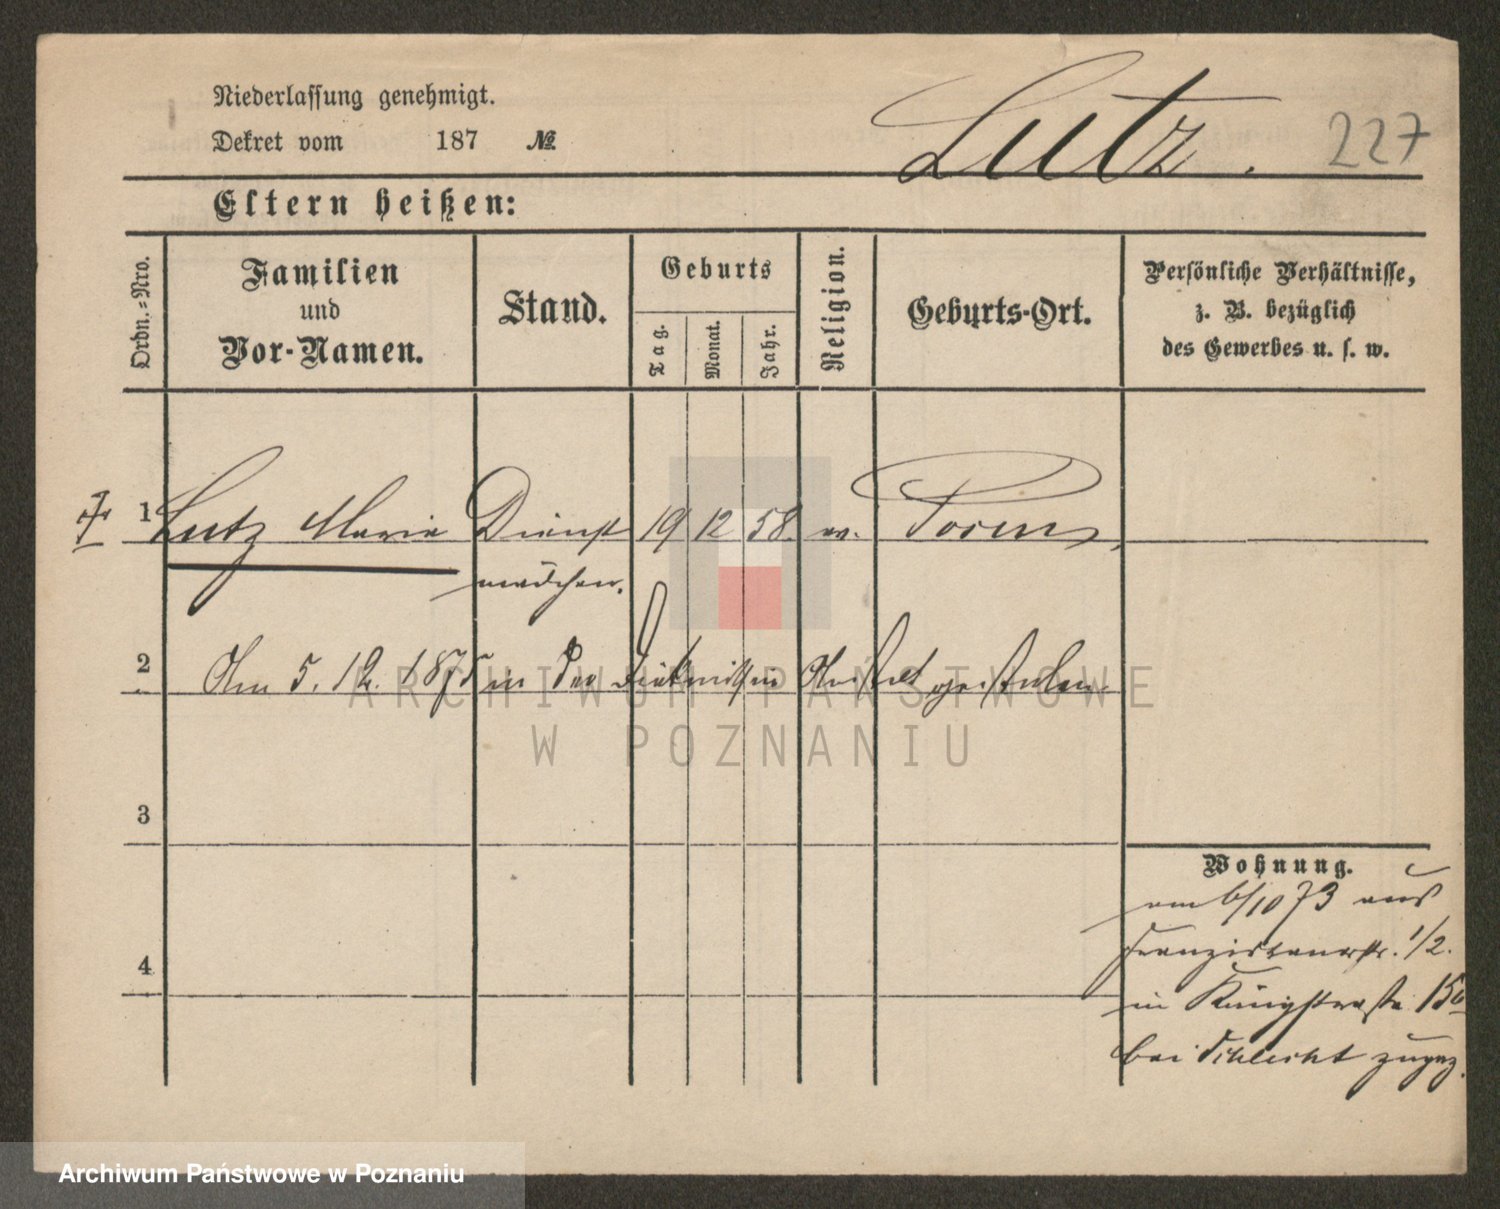 Niederlassung genehmigt.
Dekret vom 187 №
Lutz.
227
Eltern heißen:
Ordn.-Nro.
Familien
und
Vor-Namen.
Stand.
Geburts
Tag.
Monat.
Jahr.
Religion.
Geburts-Ort.
Persönliche Verhältnisse,
z. B. bezüglich
des Gewerbes u. s. w.
1 Lutz Marie Dienst 19 12 58. ev. Posen,
mädchen.
2 Am 5. 12. 1875 in der Anstalt gestorben.
ARCHIWUM PAŃSTWOWE
W POZNANIU
3
4
Wohnung.
am 6/10 73 aus
Franziskanerstr. 1/2.
in Königstraße 15
bei Schlecht zugez.
Archiwum Państwowe w Poznaniu